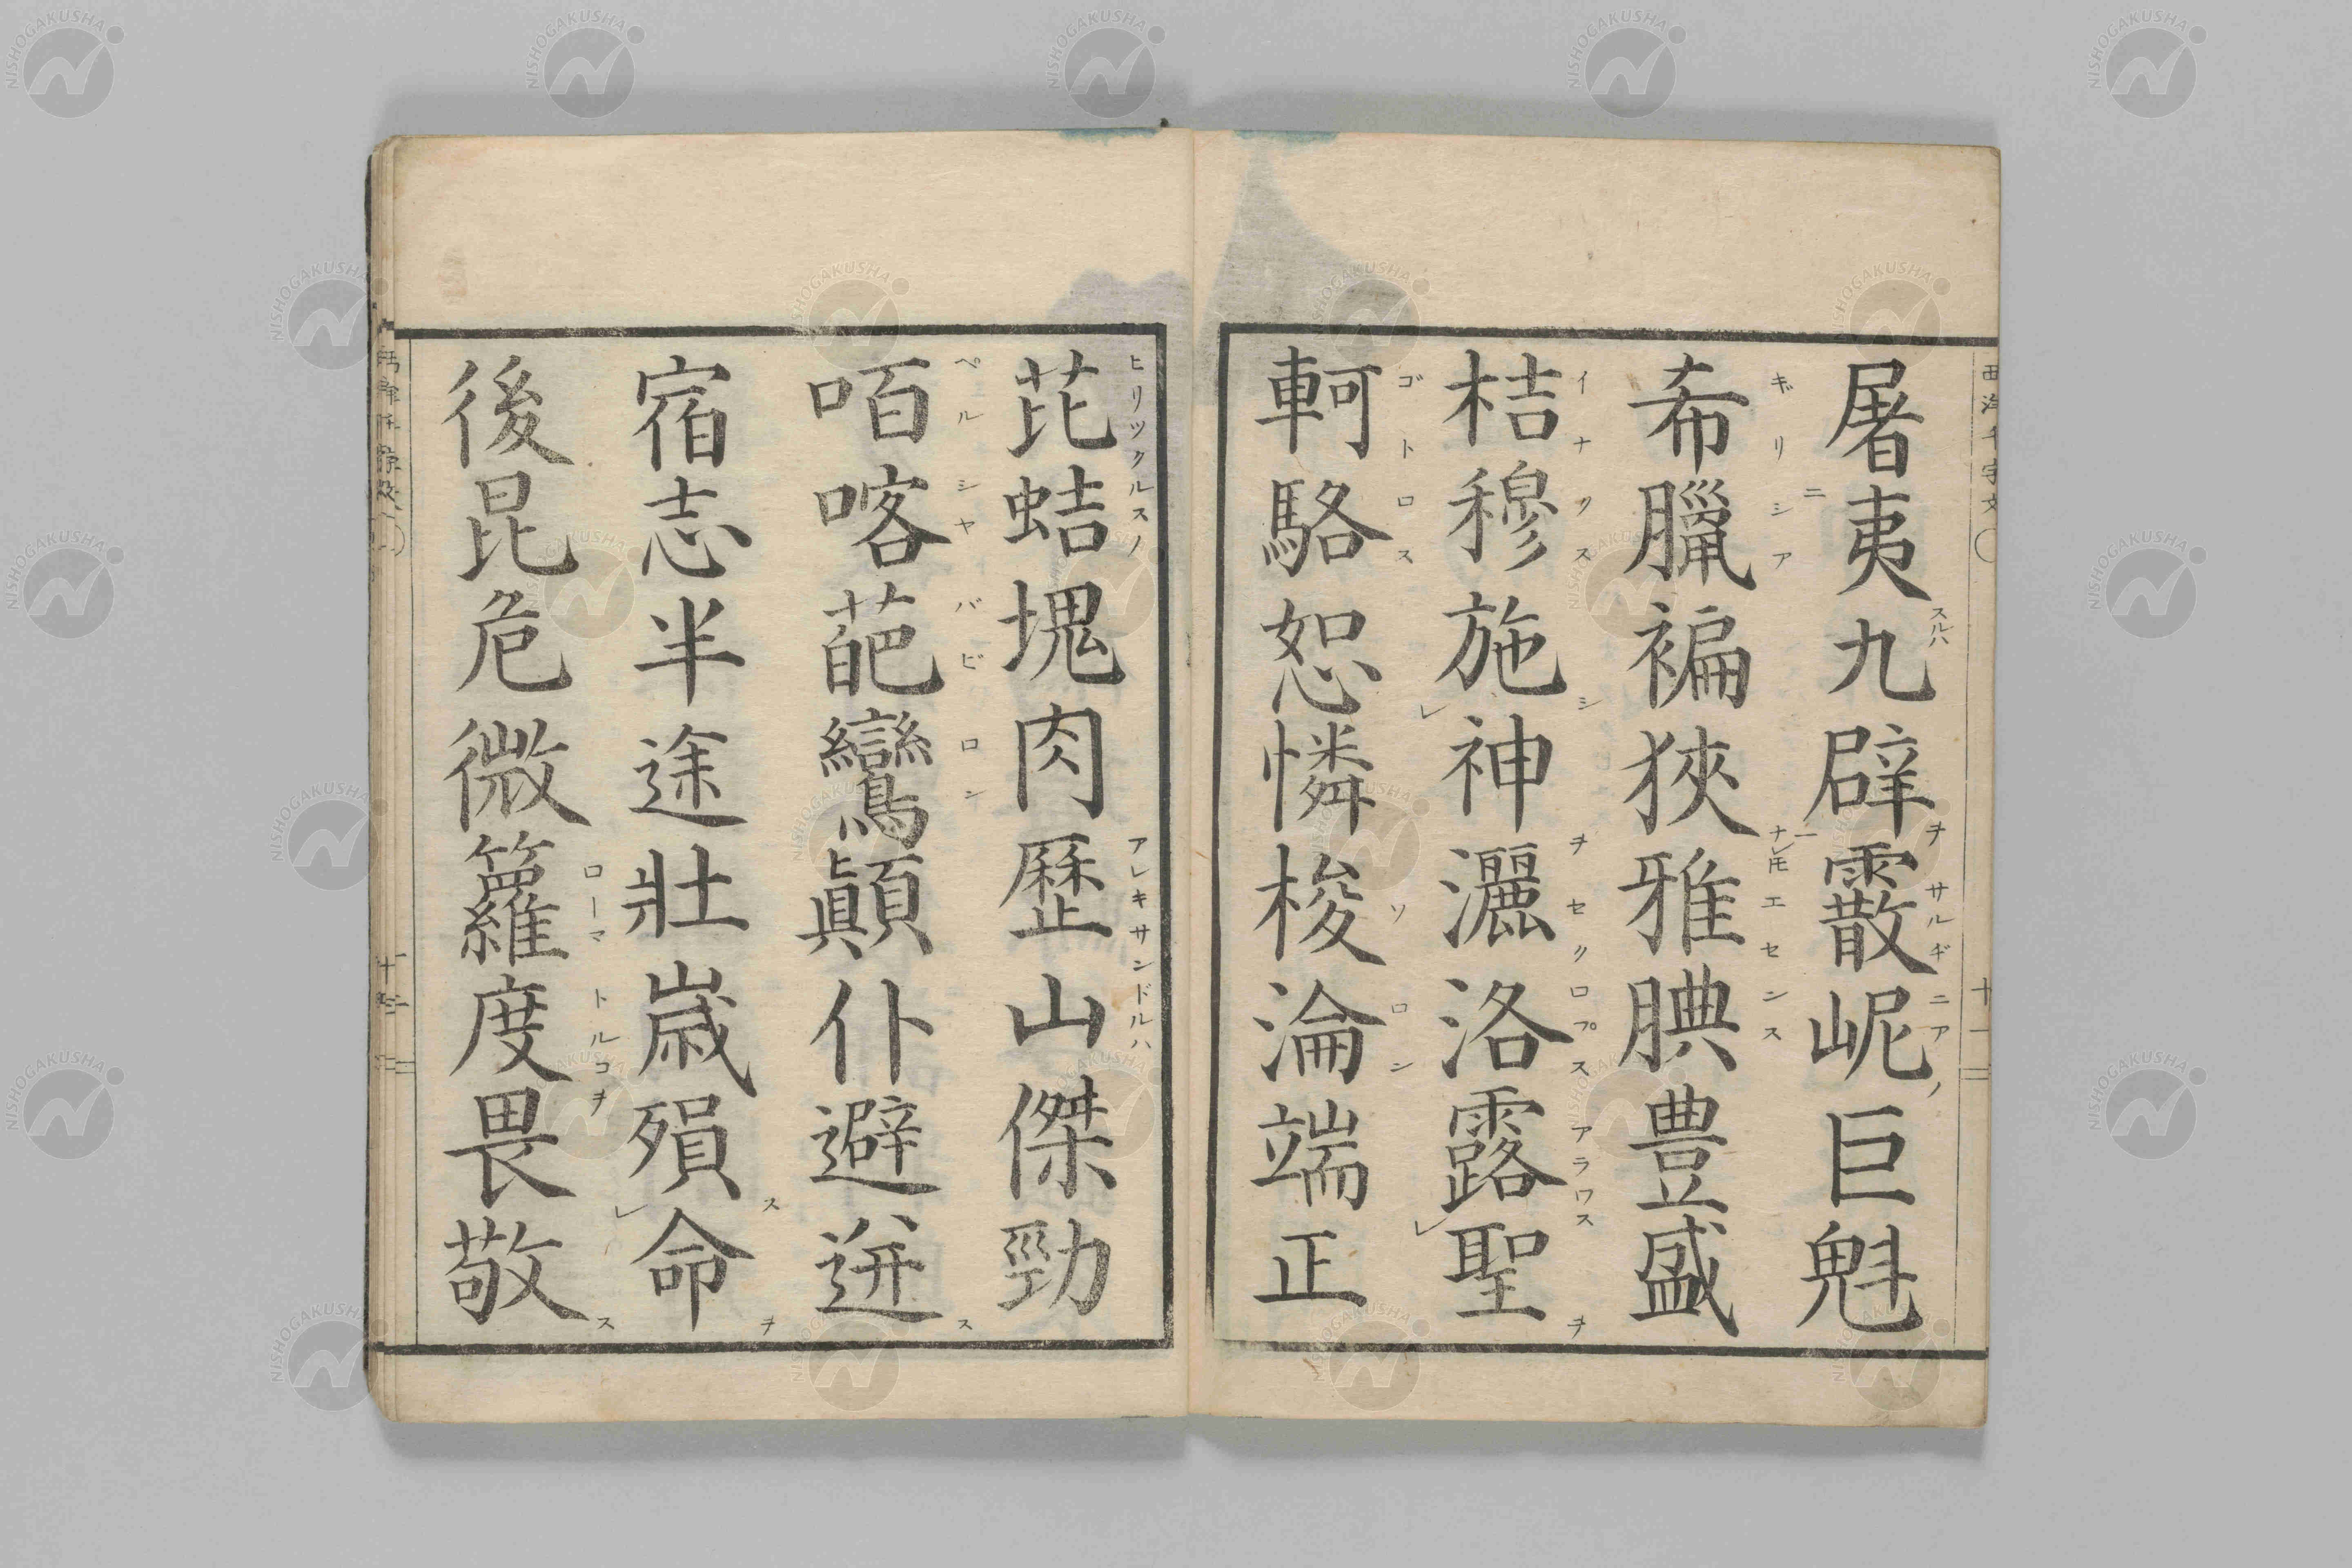 西洋千字文
十一
屠夷九辟霰岮巨魁
スルハ ヲ サルヂニアノ
希臘褊狹雅腆豊盛
ギリシア ナレモエセンス
桔穆施神灑洛露聖
イナクス シ ヲ セクロプス アラワス ヲ
軻駱恕憐梭淪端正
ゴトロス ソロン
芘蛣塊肉歷山傑勁
ヒリツクルスノ アレキサンドルハ
咟喀葩鸞顛仆避迸
ペルシヤ バビロン ス
宿志半途壯歳殞命
ス ヲ
後昆危微籮度畏敬
ローマ トルコヲ ス
NISHOGAKUSHA